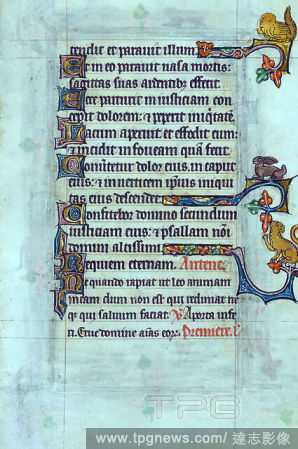 tendit et parauit illum
Et in eo parauit uasa mortis:
sagittas suas ardentibus effecit
Ecce parturit iniusticiam con
cepit dolorem: et peperit iniqtatẽ
Lacum aperuit et effodit eum:
et incidit in foueam quã fecit
Conuertetur dolor eius in caput
eius: et in uerticem ipius iniqui
tas eius descendet
Confitebor domino secundum
iusticiam eius: et psallam nõi
domini altissimi
Requiem eternam. Antene
Ne quando rapiat ut leo animam
meam dum non est qui redimat ne
qz qui saluum faciat. V A porta infe
ri. Erue domine aĩas eorz. Premiere. l
TPG
www.tpgnews.com/ 達志影像